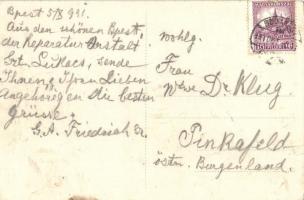 Bpest 5/8 931.
Aus den schönen Bpest,
der Reparatur Anstalt
Szt. Lukacs, sende
Ihnen, Ihren Lieben
Angehörigen die besten
Grüsse
G. A. Friedrich
wohlg.
Frau
Wwe Dr Klug
Pinkafeld
östr. Burgenland.